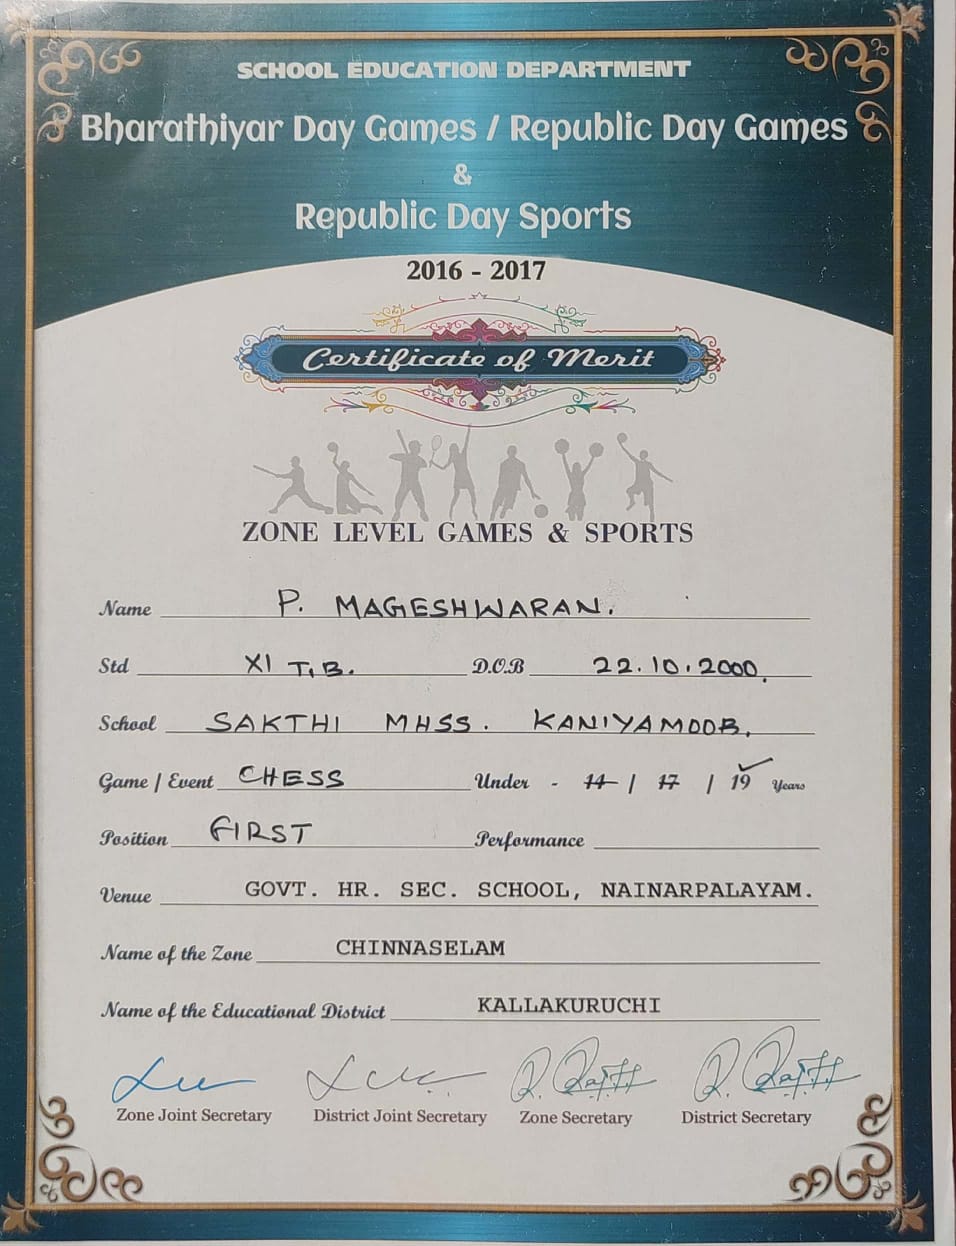 SCHOOL EDUCATION DEPARTMENT
Bharathiyar Day Games / Republic Day Games
&
Republic Day Sports
2016 - 2017
Certificate of Merit
ZONE LEVEL GAMES & SPORTS
Name P. MAGESHWARAN.
Std XI T.B. D.O.B 22.10.2000.
School SAKTHI MHSS. KANIYAMOOR.
Game / Event CHESS Under - 14 / 17 / 19 Years
Position FIRST Performance
Venue GOVT. HR. SEC. SCHOOL, NAINARPALAYAM.
Name of the Zone CHINNASELAM
Name of the Educational District KALLAKURUCHI
Zone Joint Secretary District Joint Secretary Zone Secretary District Secretary